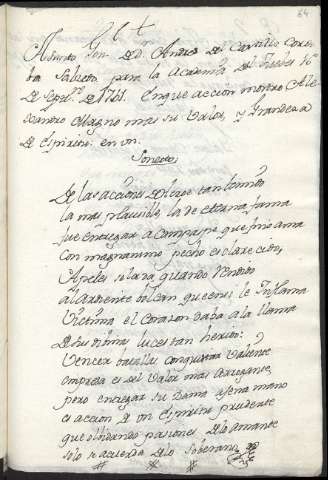 64
Asunto Son. D. D. Andres del Castillo Cordo
ba Salgado para la Academia del Jueves 10
de Sept.re de 1761. En que accion mostro Ale
xandro Magno mas su Valor, y grandeza
de Espiritu: en un.
Sonetto
De las acciones de Heroe tan lomito
la mas plausible, la de eterna fama
fue entregar a Compaspe que fino ama
con magnanimo pecho esclarecido,
Apeles sola, quando rendido
al ardiente bolcan que en si le Inflama
Victima el Corazon daba a la llama
De sus divinas luces tan herido:
Vencer batallas Conquistar Valiente
empresa es del Valor mas arrogante,
pero entregar su Dama a fina mano
es accion de un espiritu prudente
que olvidando pasiones de lo amante
solo se acuerda de lo Soberano